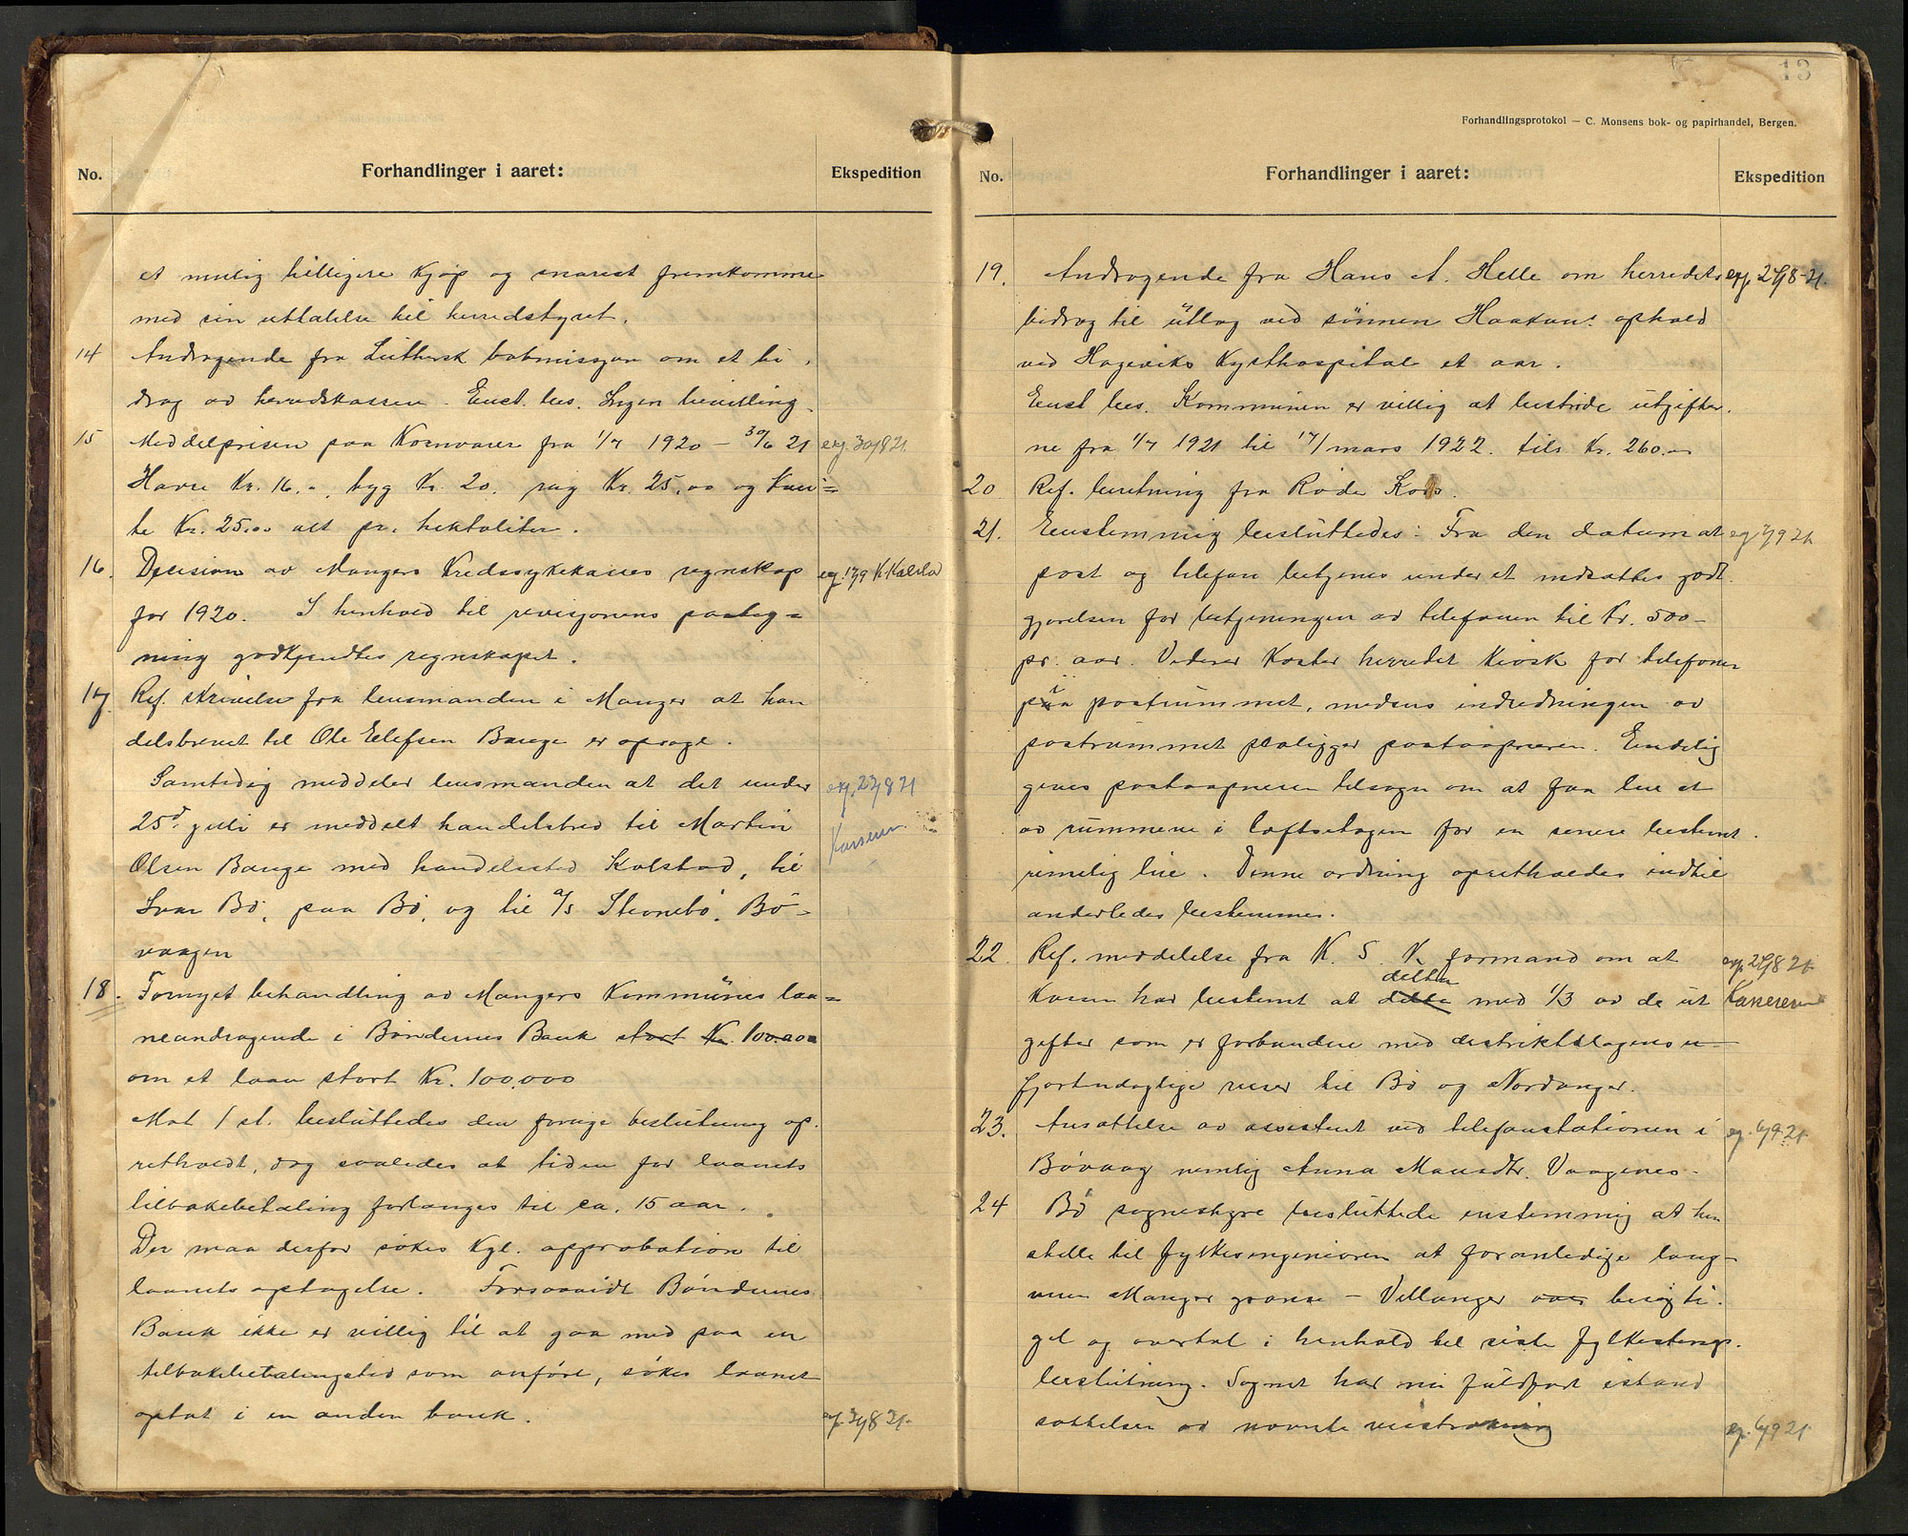 No.
Forhandlinger i aaret:
Ekspedition
et mulig billigere kjøp og snarest fremkomme
med sin uttalelse til herredstyret.
14 Andragende fra Luthersk bokmissjon om et bi
drag av herredskassen. Enst. bes. Ingen bevilling.
15 Middelprisen paa Kornvarer fra 1/7 1920 – 30/6 21
Havre Kr. 16.-, byg Kr. 20. rug Kr. 25.00 og hve=
te Kr. 25.00 alt pr. hektoliter.
16. Decision av Mangers Kredssykekasses regnskap
for 1920. I henhold til revisjonens paateg=
ning godkjendtes regnskapet.
17. Ref. skrivelse fra lensmanden i Manger at han
delsbrevet til Ole Elefsen Bauge er opsagt.
Samtidig meddeler lensmanden at det under
25d. juli er meddelt handelsbrev til Martin
Olsen Bauge med handelssted Kolstad, til
Ivar Bø, paa Bø, og til A/S Steonebø, Bø-
vaagen
18. Fornyet behandling av Mangers Kommunes laa=
neandragende i Bøndernes Bank stort Kr. 100.000
om et laan stort Kr. 100,000
Mot 1 st. besluttedes den forrige beslutning op.
retholdt, dog saaledes at tiden for laanets
tilbakebetaling forlanges til ca. 15 aar.
Der maa derfor søkes Kgl. approbation til
laanets optagelse. Forsaavidt Bøndernes
Bank ikke er villig til at gaa med paa en
tilbakebetalingstid som anført, søkes laanet
optat i en anden bank.
exp. 30/8 21.
exp. 17/9 K. Kolstad
exp. 23/8 21
Kasserer.
exp. 31/8 21.
13
Forhandlingsprotokol — C. Monsens bok- og papirhandel, Bergen.
No.
Forhandlinger i aaret:
Ekspedition
19. Andragende fra Hans A. Helle om herredets exp. 27/8-21.
bidrag til utlag ved sønnen Haakons ophold
ved Hageviks Kysthospital et aar.
Enst bes. Kommunen er villig at bestride utgifter.
ne fra 1/7 1921 til 17/mars 1922. tils Kr. 260.-
20. Ref. beretning fra Røde Kors.
21. Enstemmig besluttedes: Fra den datum at
post og telefon betjenes under et indsattes godt
gjørelsen for betjeningen av telefonen til Kr. 500-
pr. aar. Videre koster herredet kiosk for telefonen
i postrummet, medens indredningen av
postrummet paaligger postaapneren. Endelig
gives postaapneren tilsagn om at faa leie et
av rummene i loftsetagen for en senere bestemt
rimelig leie. Denne ordning opretholdes indtil
anderledes bestemmes.
22. Ref. meddelelse fra K. S. K. formand om at exp. 29/8 21
Kassen har bestemt at delta deltta med 1/3 av de ut Kassereren
gifter som er forbundne med distriktslægens
fjortendaglige reiser til Bø og Nordanger.
23. Ansættelse av assistent ved telefonstationen i
Bøvaag nemlig Anna Monsdtr. Vaagenes.
24 Bø sognestyre besluttede enstemmig at hen
stille til fylkesingeniøren at foranledige lang-
veien Manger grænse – Villanger over besigti.
get og overtat i henhold til siste fylkestings.
beslutning. Sognet har nu fuldført istand
sættelsen av nævnte veistrækning